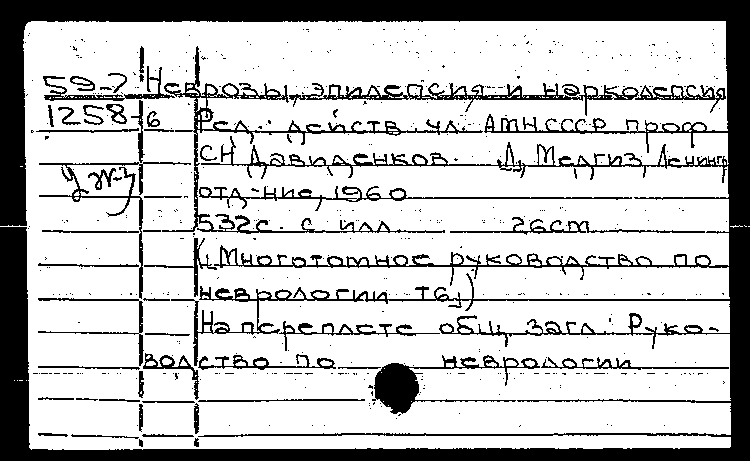 59-7 Неврозы, эпилепсия и нарколепсия
1258-6 Ред.: действ. чл. АМН СССР проф.
СН Давиденков. Л, Медгиз, Ленингр
отд-ние, 1960
532с. с илл. 26cm
(„Многотомное руководство по
неврологии т6„)
На переплете общ, загл.: Руко-
водство по неврологии